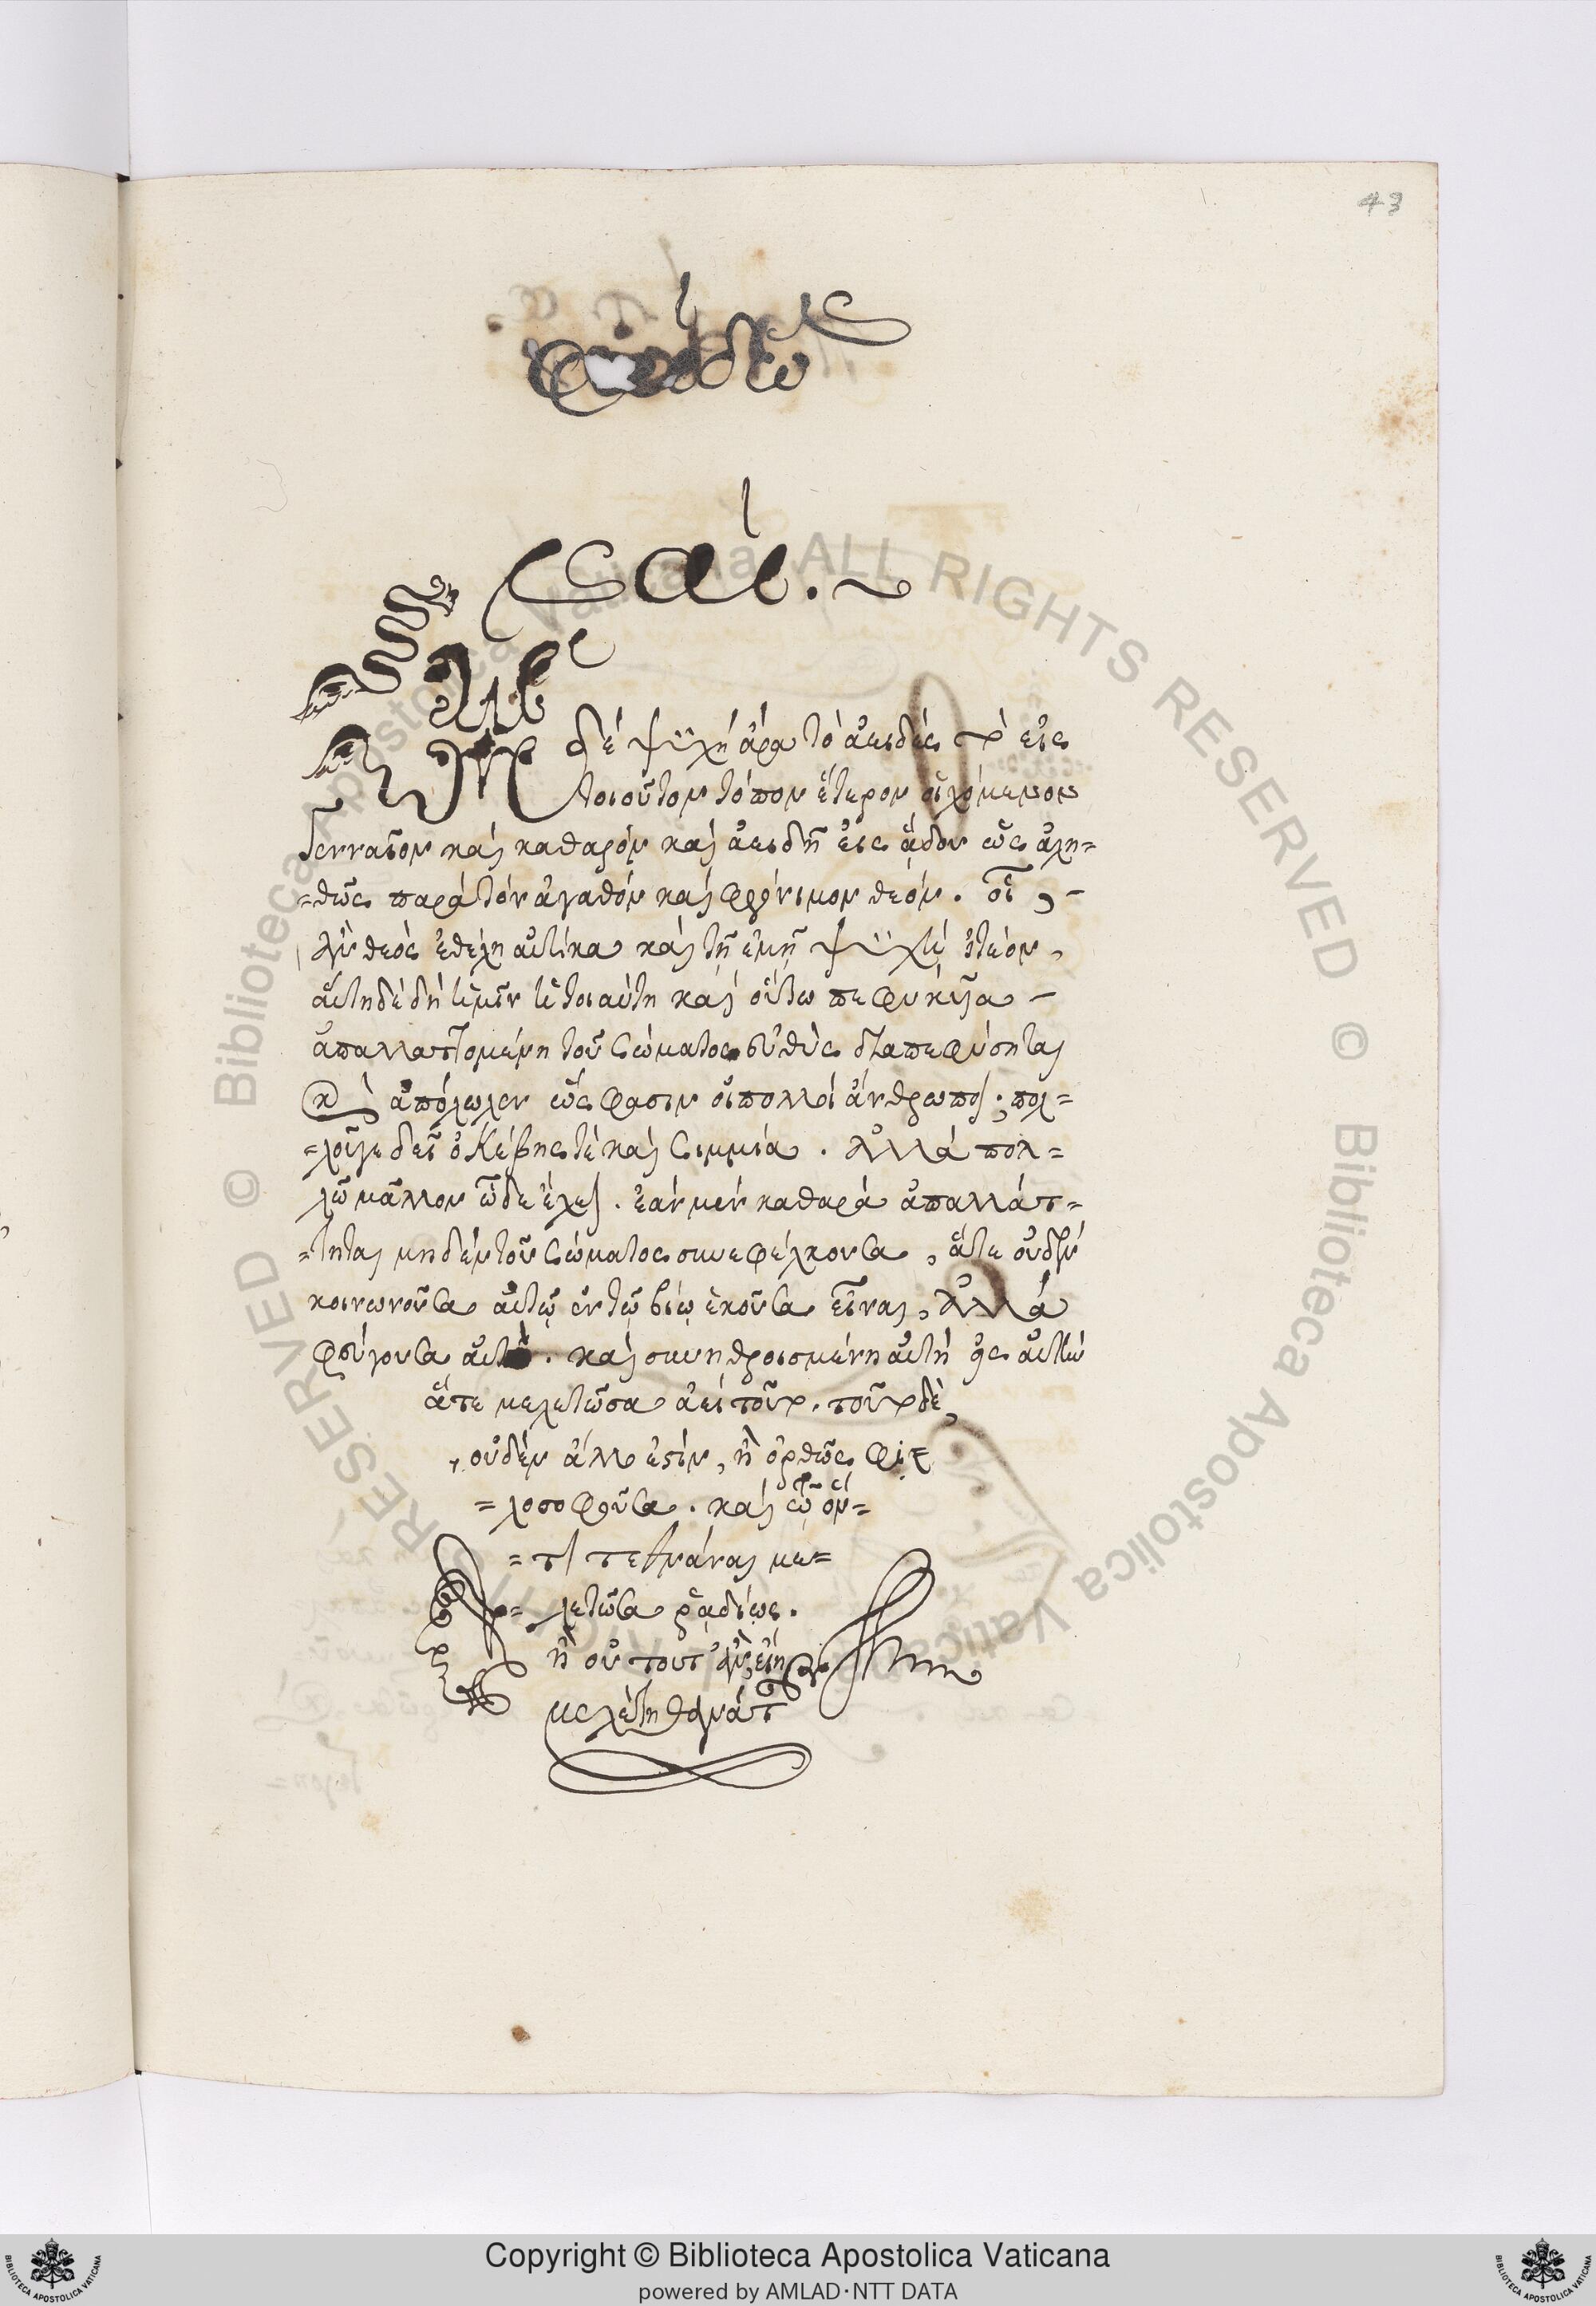 43
Φαίδων
Ἡ δέ ψϋχή ἄρα τὸ ἀειδές τὸ εἰς
τοιοῦτον τόπον ἕτερον οἰχόμενον
γενναῖον καί καθαρόν καί ἀειδῆ εἰς ᾅδου ὡς ἀλη=
=θῶς παρά τόν ἀγαθόν καί φρόνιμον θεόν. οἷ
ἄν θεός ἐθέλη αὐτίκα καί τῇ ἐμῇ ψϋχῇ ἰτέον,
αὕτη δέ δή ἡμῖν ἡ τοιαύτη καί οὕτω πεφυκῦια
ἀπαλλαττομένη τοῦ σώματος εὐθύς διαπεφύσηται
καὶ ἀπόλωλεν ὥς φασιν οἱ πολλοί ἄνθρωποι; πολ=
=λοῦγε δεῖ ὁ Κέβης τέ καί Σιμμία. ἀλλά πολ=
λῶ μᾶλλον ὧδε ἔχει. ἐάν μέν καθαρά ἀπαλλάτ=
=τηται μηδέν τοῦ σώματος συνεφέλκουσα, ἅτε οὐδέν
κοινωνοῦσα αὐτῷ ἐν τῷ βίῳ ἑκοῦσα εἶναι, ἀλλά
φεύγουσα αὐτό. καί συνηθροισμένη αὐτή εἰς αὐτήν
ἅτε μελετῶσα ἀεί τοῦτο. τοῦτο δὲ
οὐδέν ἄλλο ἐστίν, ἢ ὀρθῶς φι=
=λοσοφοῦσα. καί τῷ ὄν=
=τι τεθνάναι με=
=λετῶσα ῥᾳδίως.
ἢ οὐ τοῦτ' ἄν εἴη
μελέτη θανάτου
Copyright © Biblioteca Apostolica Vaticana
powered by AMLAD·NTT DATA
© Biblioteca Apostolica Vaticana ALL RIGHTS RESERVED © Biblioteca Apostolica Vaticana ALL RIGHTS RESERVED